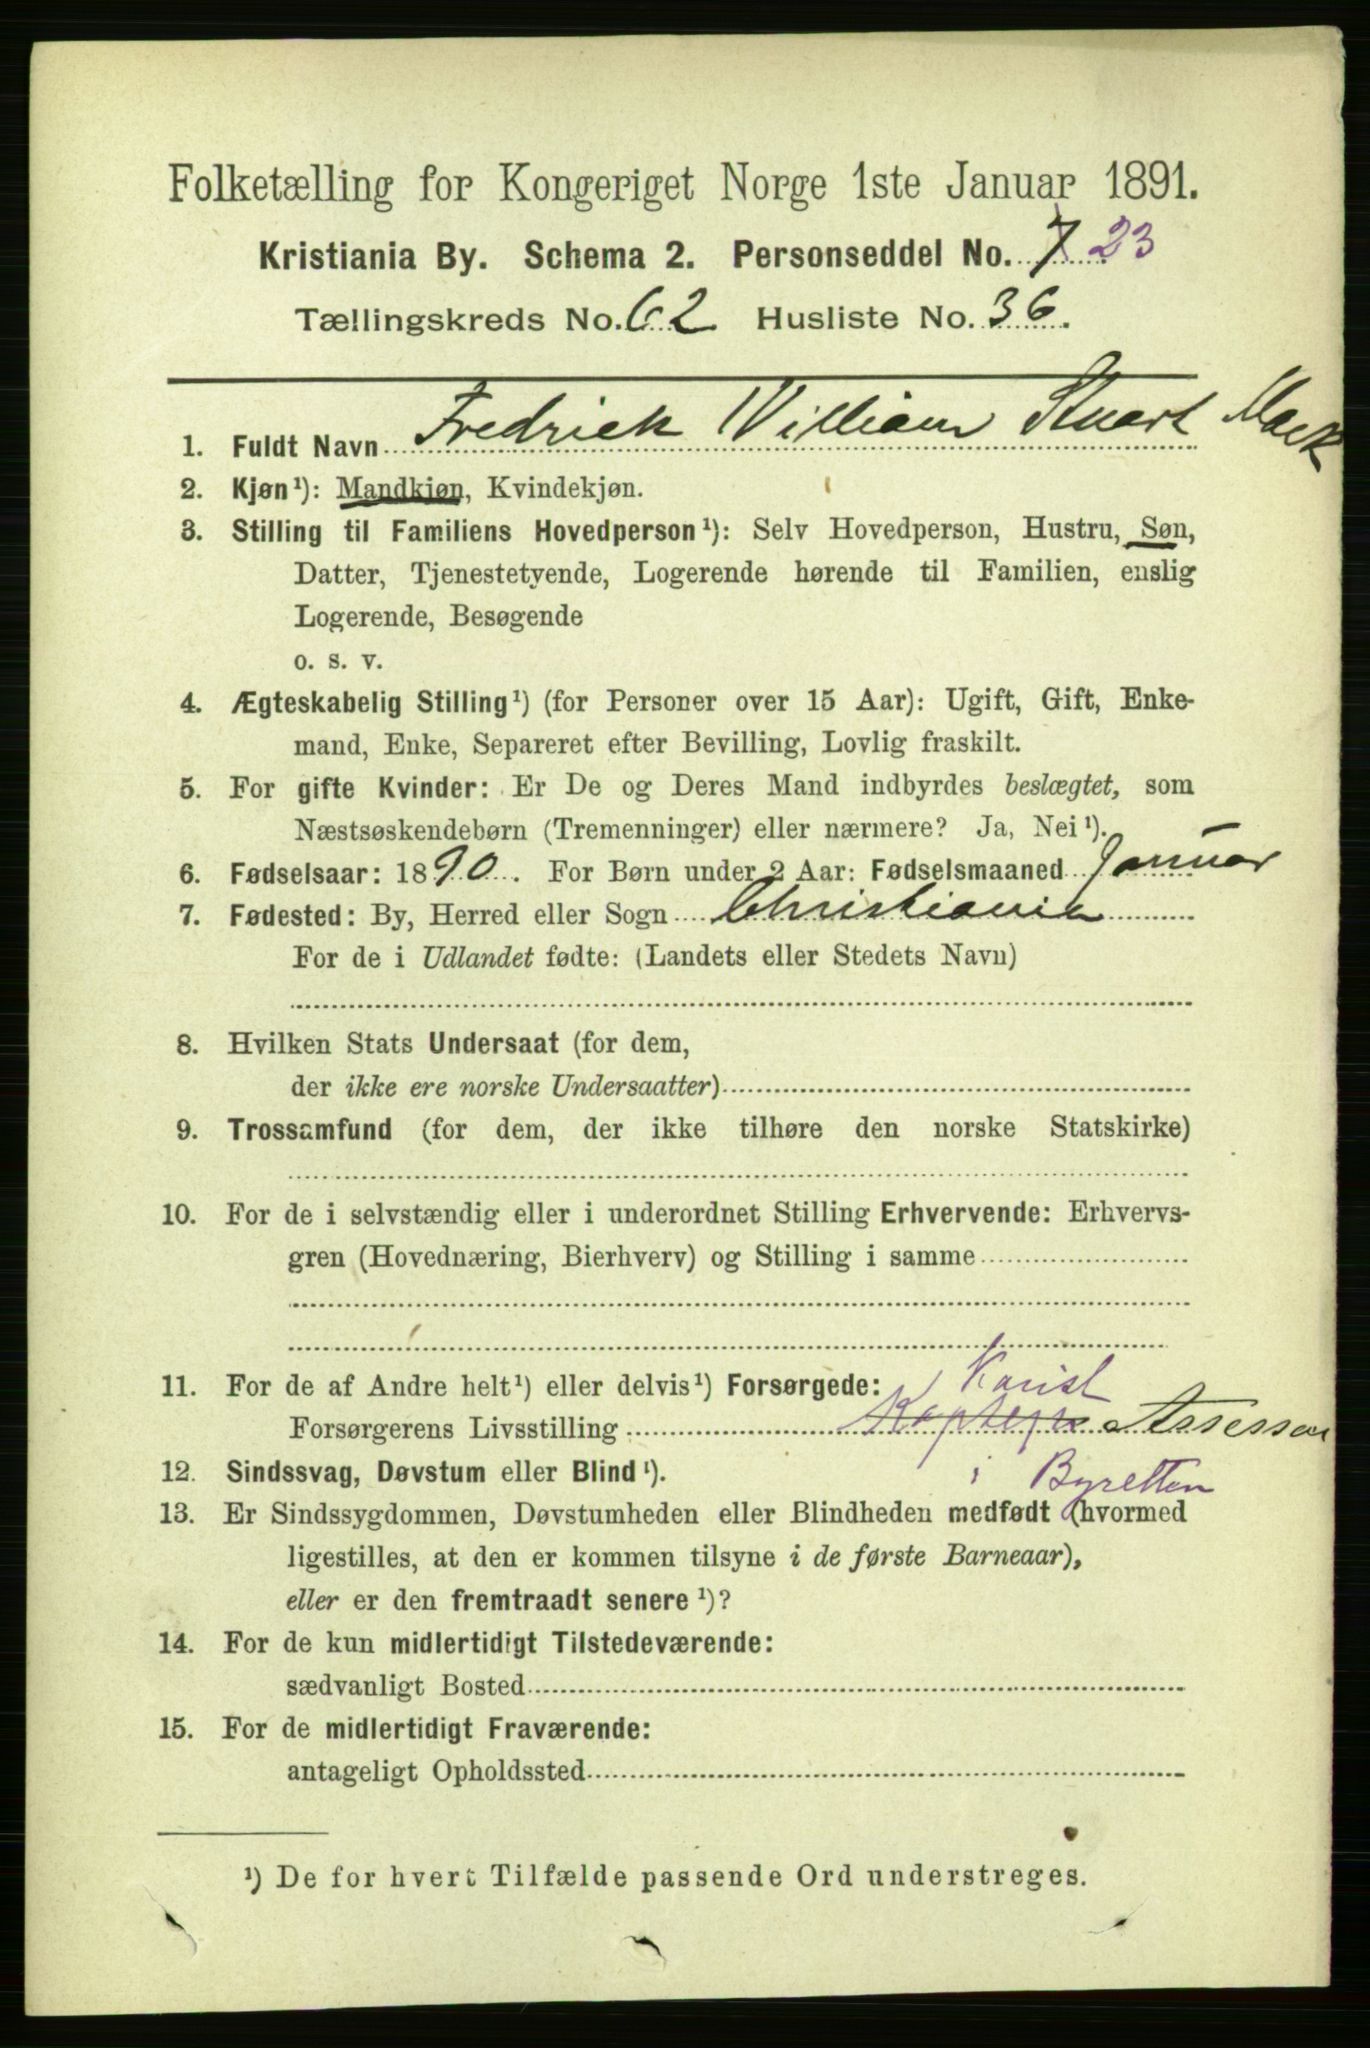 Folketælling for Kongeriget Norge 1ste Januar 1891.
Kristiania By. Schema 2. Personseddel No. 7 23
Tællingskreds No. 62 Husliste No. 36.
1. Fuldt Navn Fredrick William Stuart Mack
2. Kjøn¹): Mandkjøn, Kvindekjøn.
3. Stilling til Familiens Hovedperson¹): Selv Hovedperson, Hustru, Søn,
Datter, Tjenestetyende, Logerende hørende til Familien, enslig
Logerende, Besøgende
o. s. v.
4. Ægteskabelig Stilling¹) (for Personer over 15 Aar): Ugift, Gift, Enke-
mand, Enke, Separeret efter Bevilling, Lovlig fraskilt.
5. For gifte Kvinder: Er De og Deres Mand indbyrdes beslægtet, som
Næstsøskendebørn (Tremenninger) eller nærmere? Ja, Nei¹).
6. Fødselsaar: 1890. For Børn under 2 Aar: Fødselsmaaned Januar
7. Fødested: By, Herred eller Sogn Christiania
For de i Udlandet fødte: (Landets eller Stedets Navn)
8. Hvilken Stats Undersaat (for dem,
der ikke ere norske Undersaatter)
9. Trossamfund (for dem, der ikke tilhøre den norske Statskirke)
10. For de i selvstændig eller i underordnet Stilling Erhvervende: Erhvervs-
gren (Hovednæring, Bierhverv) og Stilling i samme
11. For de af Andre helt¹) eller delvis¹) Forsørgede:
Forsørgerens Livsstilling Assessor
12. Sindssvag, Døvstum eller Blind¹). i Byretten
13. Er Sindssygdommen, Døvstumheden eller Blindheden medfødt (hvormed
ligestilles, at den er kommen tilsyne i de første Barneaar),
eller er den fremtraadt senere ¹)?
14. For de kun midlertidigt Tilstedeværende:
sædvanligt Bosted
15. For de midlertidigt Fraværende:
antageligt Opholdssted
¹) De for hvert Tilfælde passende Ord understreges.